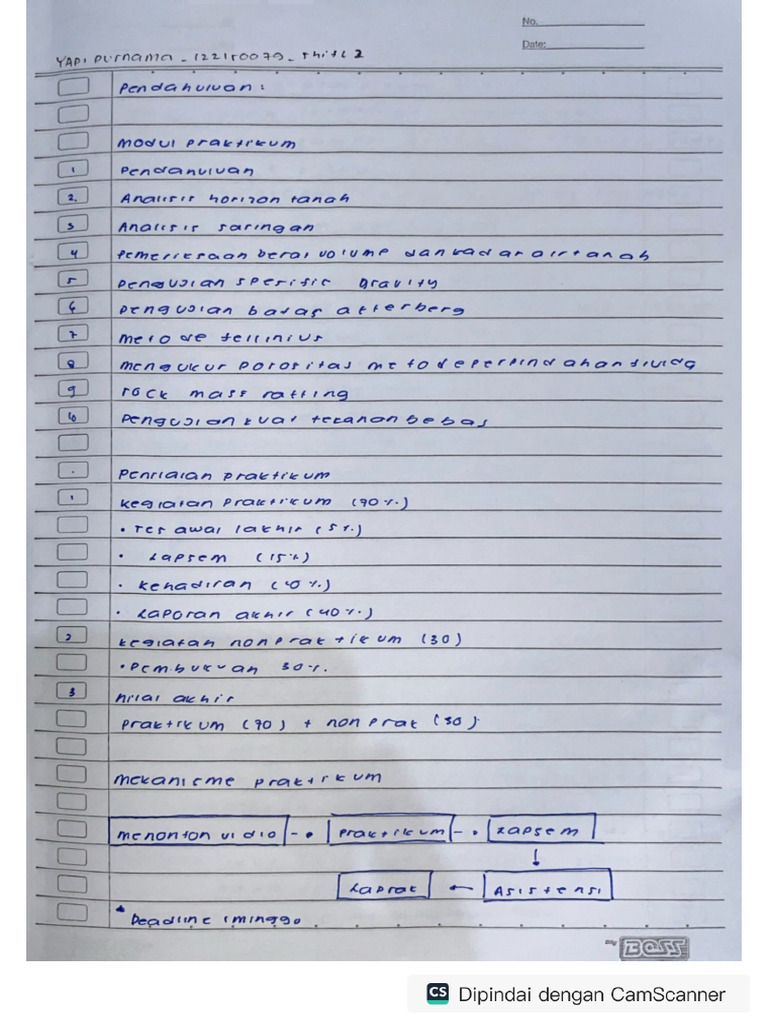 No.
Date:
YAPI PURNAMA - 122150079 - Shift 2
Pendahuluan :
Modul praktikum
1 Pendahuluan
2. Analisis horizon tanah
3 Analisis saringan
4 Pemeriksaan berat volume dan kadar air tanah
5 Pengujian spesific gravity
6 Pengujian batas atterberg
7 Metode fellinius
8 Mengukur porositas metode perpindahan fluida
9 rock mass ratting
10 Pengujian kuat tekanan bebas
Penilaian praktikum
1 kegiatan praktikum (70%)
• Tes awal /akhir (5%)
• Lapsem (15%)
• kehadiran (10%)
• Laporan akhir (40%)
2 kegiatan nonpraktikum (30)
• Pembukuan 30%.
3 nilai akhir
praktikum (70) + non prak (30)
mekanisme praktikum
menonton vidio
praktikum
Lapsem
Laprak
Asistensi
Deadline 1 minggo
my BOSS
CS Dipindai dengan CamScanner